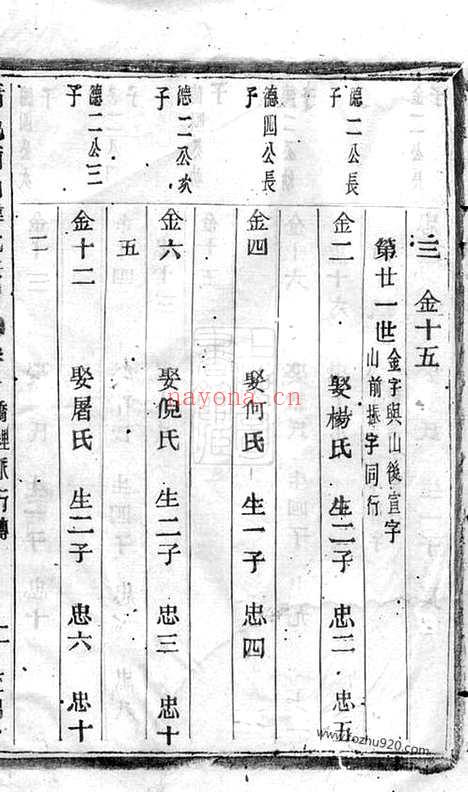 三 金十五
第廿一世 金字與山後宣字
山前振字同行
德二公長
子
金二 娶楊氏 生二子 忠二 忠五
德四公長
子
金四 娶何氏 生一子 忠四
德二公次
子
金六 娶倪氏 生二子 忠三 忠十
五
德二公三
子
金十二 娶屠氏 生二子 忠六 忠十
二
nayona.cn
www.fozhu920.com